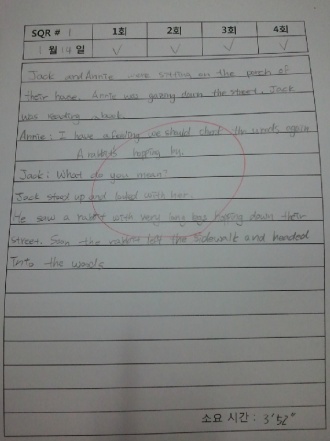 SQR # 1 1회 2회 3회 4회
1월 19일 ✓ ✓ ✓ ✓
Jack and Annie were sitting on the porch of
their house. Annie was gazing down the street. Jack
was reading a book.
Annie: I have a feeling we should check the woods again
A rabbit's hoping by.
Jack: What do you mean?
Jack stood up and looked with her.
He saw a rabbit with very long legs hoping down their
street. Soon the rabbit left the sidewalk and headed
into the woods
소요 시간 : 3'52"